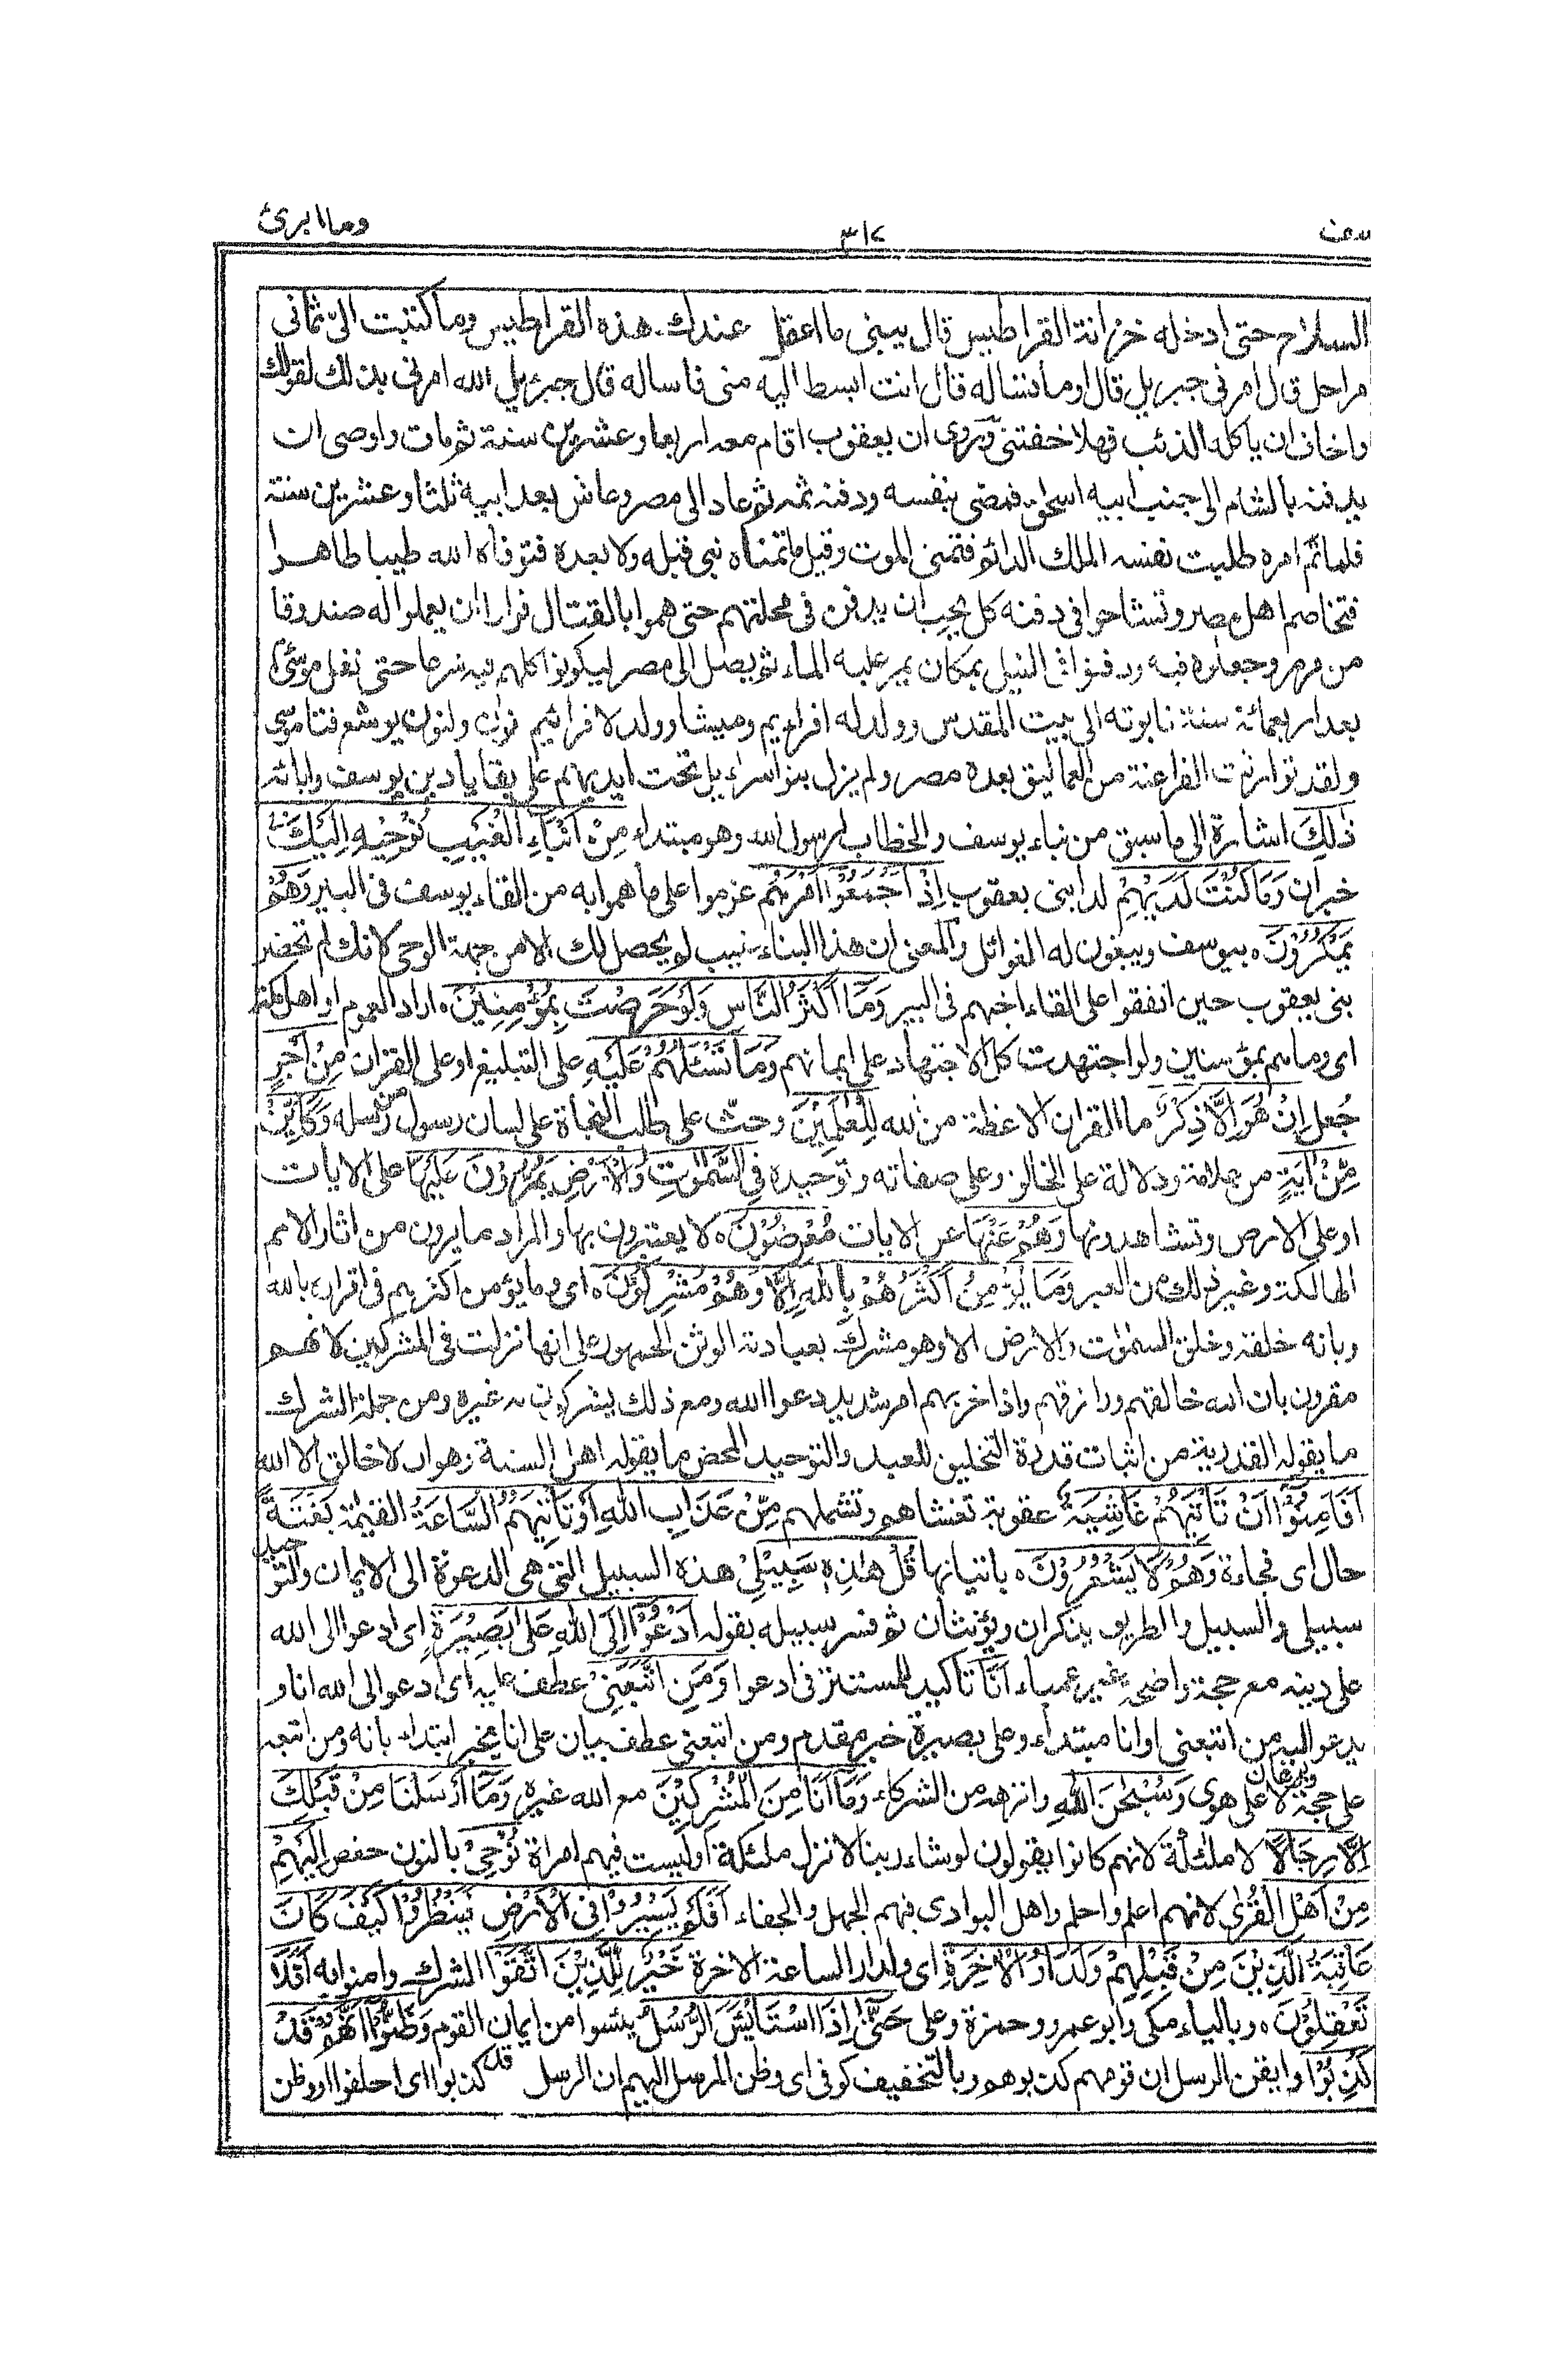 وما ابرئ
٣١٧
سف
السلام حتى ادخله خزانة القراطيس قال يبنى ما اعقل عندك هذه القراطيس وما كتبت الىّ ثمانى
مراحل قال امرنى جبريل قال اوما تساله قال انت ابسط اليه منى فاساله قال جبريل الله امرنى بذلك لقولك
واخاف ان ياكله الذئب فهلا خفتنى وروى ان يعقوب اقام معه اربعا وعشرين سنة ثم مات واوصى ان
يدفنه بالشام الى جنب ابيه اسحق فمضى بنفسه ودفنه ثمه ثم عاد الى مصر وعاش بعد ابيه ثلثا وعشرين سنة
فلما تم امره طلبت نفسه الملك الدائم فتمنى الموت وقيل ما تمناه نبى قبله ولا بعده فتوفاه الله طيبا طاهرا
فتخاصم اهل مصر وتشاحوا فى دفنه كل يحب ان يدفن فى محلتهم حتى هموا بالقتال فراوا ان يعملوا له صندوقا
من مرمر وجعلوه فيه ودفنوا فى النيل بمكان يمر عليه الماء ثم يصل الى مصر ليكونوا كلهم فيه شرعا حتى نقل موسى
بعد اربعمائة سنة تابوته الى بيت المقدس وولد له افراثيم وميشا وولد لافراثيم نون ولنون يوشع فتا موسى
ولقد توارثت الفراعنة من العماليق بعده مصر ولم يزل بنو اسراءيل تحت ايديهم على بقايا دين يوسف وابائه
ذٰلِكَ اشارة الى ما سبق من نباء يوسف والخطاب لرسول الله وهو مبتداء مِنْ اَنْبَاءِ الْغَيْبِ نُوْحِيْهِ اِلَيْكَ
خبران وَمَا كُنْتَ لَدَيْهِمْ لدا بنى يعقوب اِذْ اَجْمَعُوْا اَمْرَهُمْ عزموا على ما هموا به من القاء يوسف فى البير وَهُمْ
يَمْكُرُوْنَ ٥ بيوسف ويبغون له الغوائل والمعنى ان هذا النباء غيب لم يحصل لك الا من جهة الوحى لانك لم تحضر
بنى يعقوب حين اتفقوا على القاء اخيهم فى البير وَمَا اَكْثَرُ النَّاسِ وَلَوْ حَرَصْتَ بِمُؤْمِنِيْنَ ٥ اراد العموم او اهل مكة
اى وما هم بمؤمنين ولو اجتهدت كل الاجتهاد على ايمانهم وَمَا تَسْئَلُهُمْ عَلَيْهِ على التبليغ او على القران مِنْ اَجْرٍ
جُعل اِنْ هُوَ اِلَّا ذِكْرٌ ما القران الا عظة من الله لِلْعٰلَمِيْنَ وحثّ على طلب النجاة على لسان رسول من رسله وَكَاَيِّنْ
مِّنْ اٰيَةٍ من علامة ودلالة على الخالق وعلى صفاته وتوحيده فِى السَّمٰوٰتِ وَالْاَرْضِ يَمُرُّوْنَ عَلَيْهَا على الايات
او على الارض وتشاهدونها وَهُمْ عَنْهَا عن الايات مُعْرِضُوْنَ ٥ لا يعتبرون بها والمراد ما يرون من اثار الامم
الهالكة وغير ذلك من العبر وَمَا يُؤْمِنُ اَكْثَرُهُمْ بِاللهِ اِلَّا وَهُمْ مُشْرِكُوْنَ ٥ اى وما يؤمن اكثرهم فى اقراره بالله
وبانه خلقه وخلق السمٰوٰت والارض الا وهو مشرك بعبادة الوثن الجمهور على انها نزلت فى المشركين لانهم
مقرون بان الله خالقهم ورازقهم واذا حزبهم امر شديد دعوا الله ومع ذلك يشركون به غيره ومن جملة الشرك
ما يقوله القدرية من اثبات قدرة التخليق للعبد والتوحيد المحض ما يقوله اهل السنة وهو ان لا خالق الا الله
اَفَاَمِنُوْا اَنْ تَاْتِيَهُمْ غَاشِيَةٌ عقوبة تغشاهم وتشملهم مِّنْ عَذَابِ اللهِ اَوْ تَاْتِيَهُمُ السَّاعَةُ القيمة بَغْتَةً
حال اى فجاءة وَهُمْ لَا يَشْعُرُوْنَ ٥ باتيانها قُلْ هٰذِهٖ سَبِيْلِىْ هذه السبيل التى هى الدعوة الى الايمان والتوحيد
سبيلى والسبيل والطريق يذكران ويؤنثان ثم فسر سبيله بقوله اَدْعُوْا اِلَى اللهِ عَلٰى بَصِيْرَةٍ اى ادعوا الى الله
على دينه مع حجة واضحة غير عمياء اَنَا تاكيد للمستتر فى ادعوا وَمَنِ اتَّبَعَنِىْ عطف عليه اى ادعو الى الله انا و
يدعو اليه من اتبعنى او انا مبتداء وعلى بصيرة خبر مقدم ومن اتبعنى عطف بيان على انا يخبر ابتداء بانه ومن اتبعه
على حجة وبرهان لا على هوى وَسُبْحٰنَ اللهِ وانزهه من الشركاء وَمَا اَنَا مِنَ الْمُشْرِكِيْنَ مع الله غيره وَمَا اَرْسَلْنَا مِنْ قَبْلِكَ
اِلَّا رِجَالًا لا ملئكة لانهم كانوا يقولون لو شاء ربنا لانزل ملئكة او ليست فيهم امراة نُوْحِىْ بالنون حفص اِلَيْهِمْ
مِنْ اَهْلِ الْقُرٰى لانهم اعلم واحلم واهل البوادى فيهم الجهل والجفاء اَفَلَمْ يَسِيْرُوْا فِى الْاَرْضِ فَيَنْظُرُوْا كَيْفَ كَانَ
عَاقِبَةُ الَّذِيْنَ مِنْ قَبْلِهِمْ وَلَدَارُ الْاٰخِرَةِ اى ولدار الساعة الاخرة خَيْرٌ لِّلَّذِيْنَ اتَّقَوْا الشرك وامنوا به اَفَلَا
تَعْقِلُوْنَ ٥ وبالياء مكى وابو عمرو وحمزة وعلى حَتّٰى اِذَا اسْتَايْئَسَ الرُّسُلُ يئسوا من ايمان القوم وَظَنُّوْا اَنَّهُمْ قَدْ
كُذِبُوْا وايقن الرسل ان قومهم كذبوهم وبالتخفيف كوفى اى وظن المرسل اليهم ان الرسل قد كذبوا اى اخلفوا او وظن